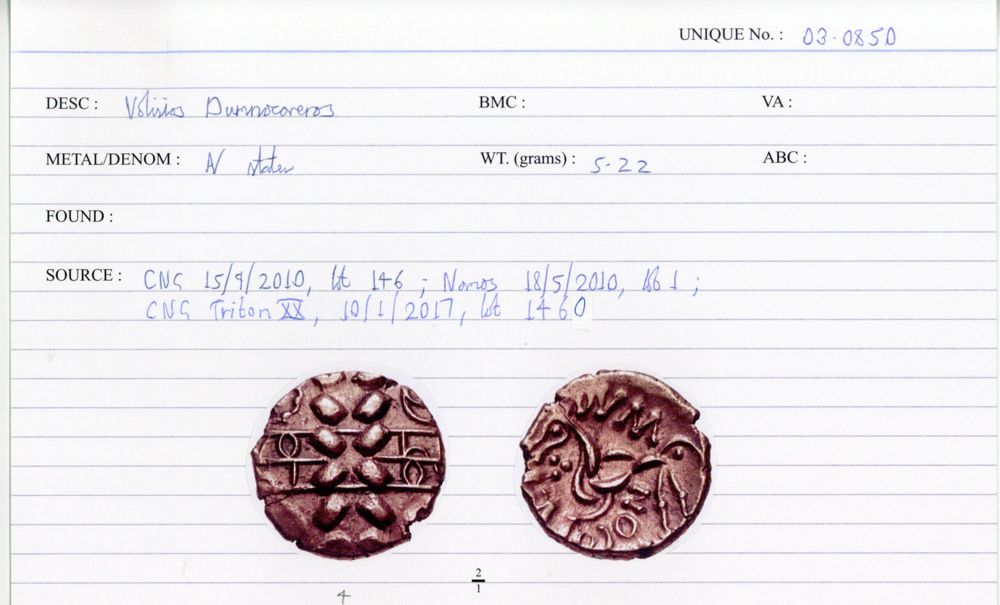 UNIQUE No. : 03·0850
DESC : Volisios Dumnocoveros BMC : VA :
METAL/DENOM : N stater WT. (grams) : 5·22 ABC :
FOUND :
SOURCE : CNG 15/9/2010, lot 146 ; Nomos 18/5/2010, lot 1 ;
CNG Triton XX, 10/1/2017, lot 1460
2
1
4